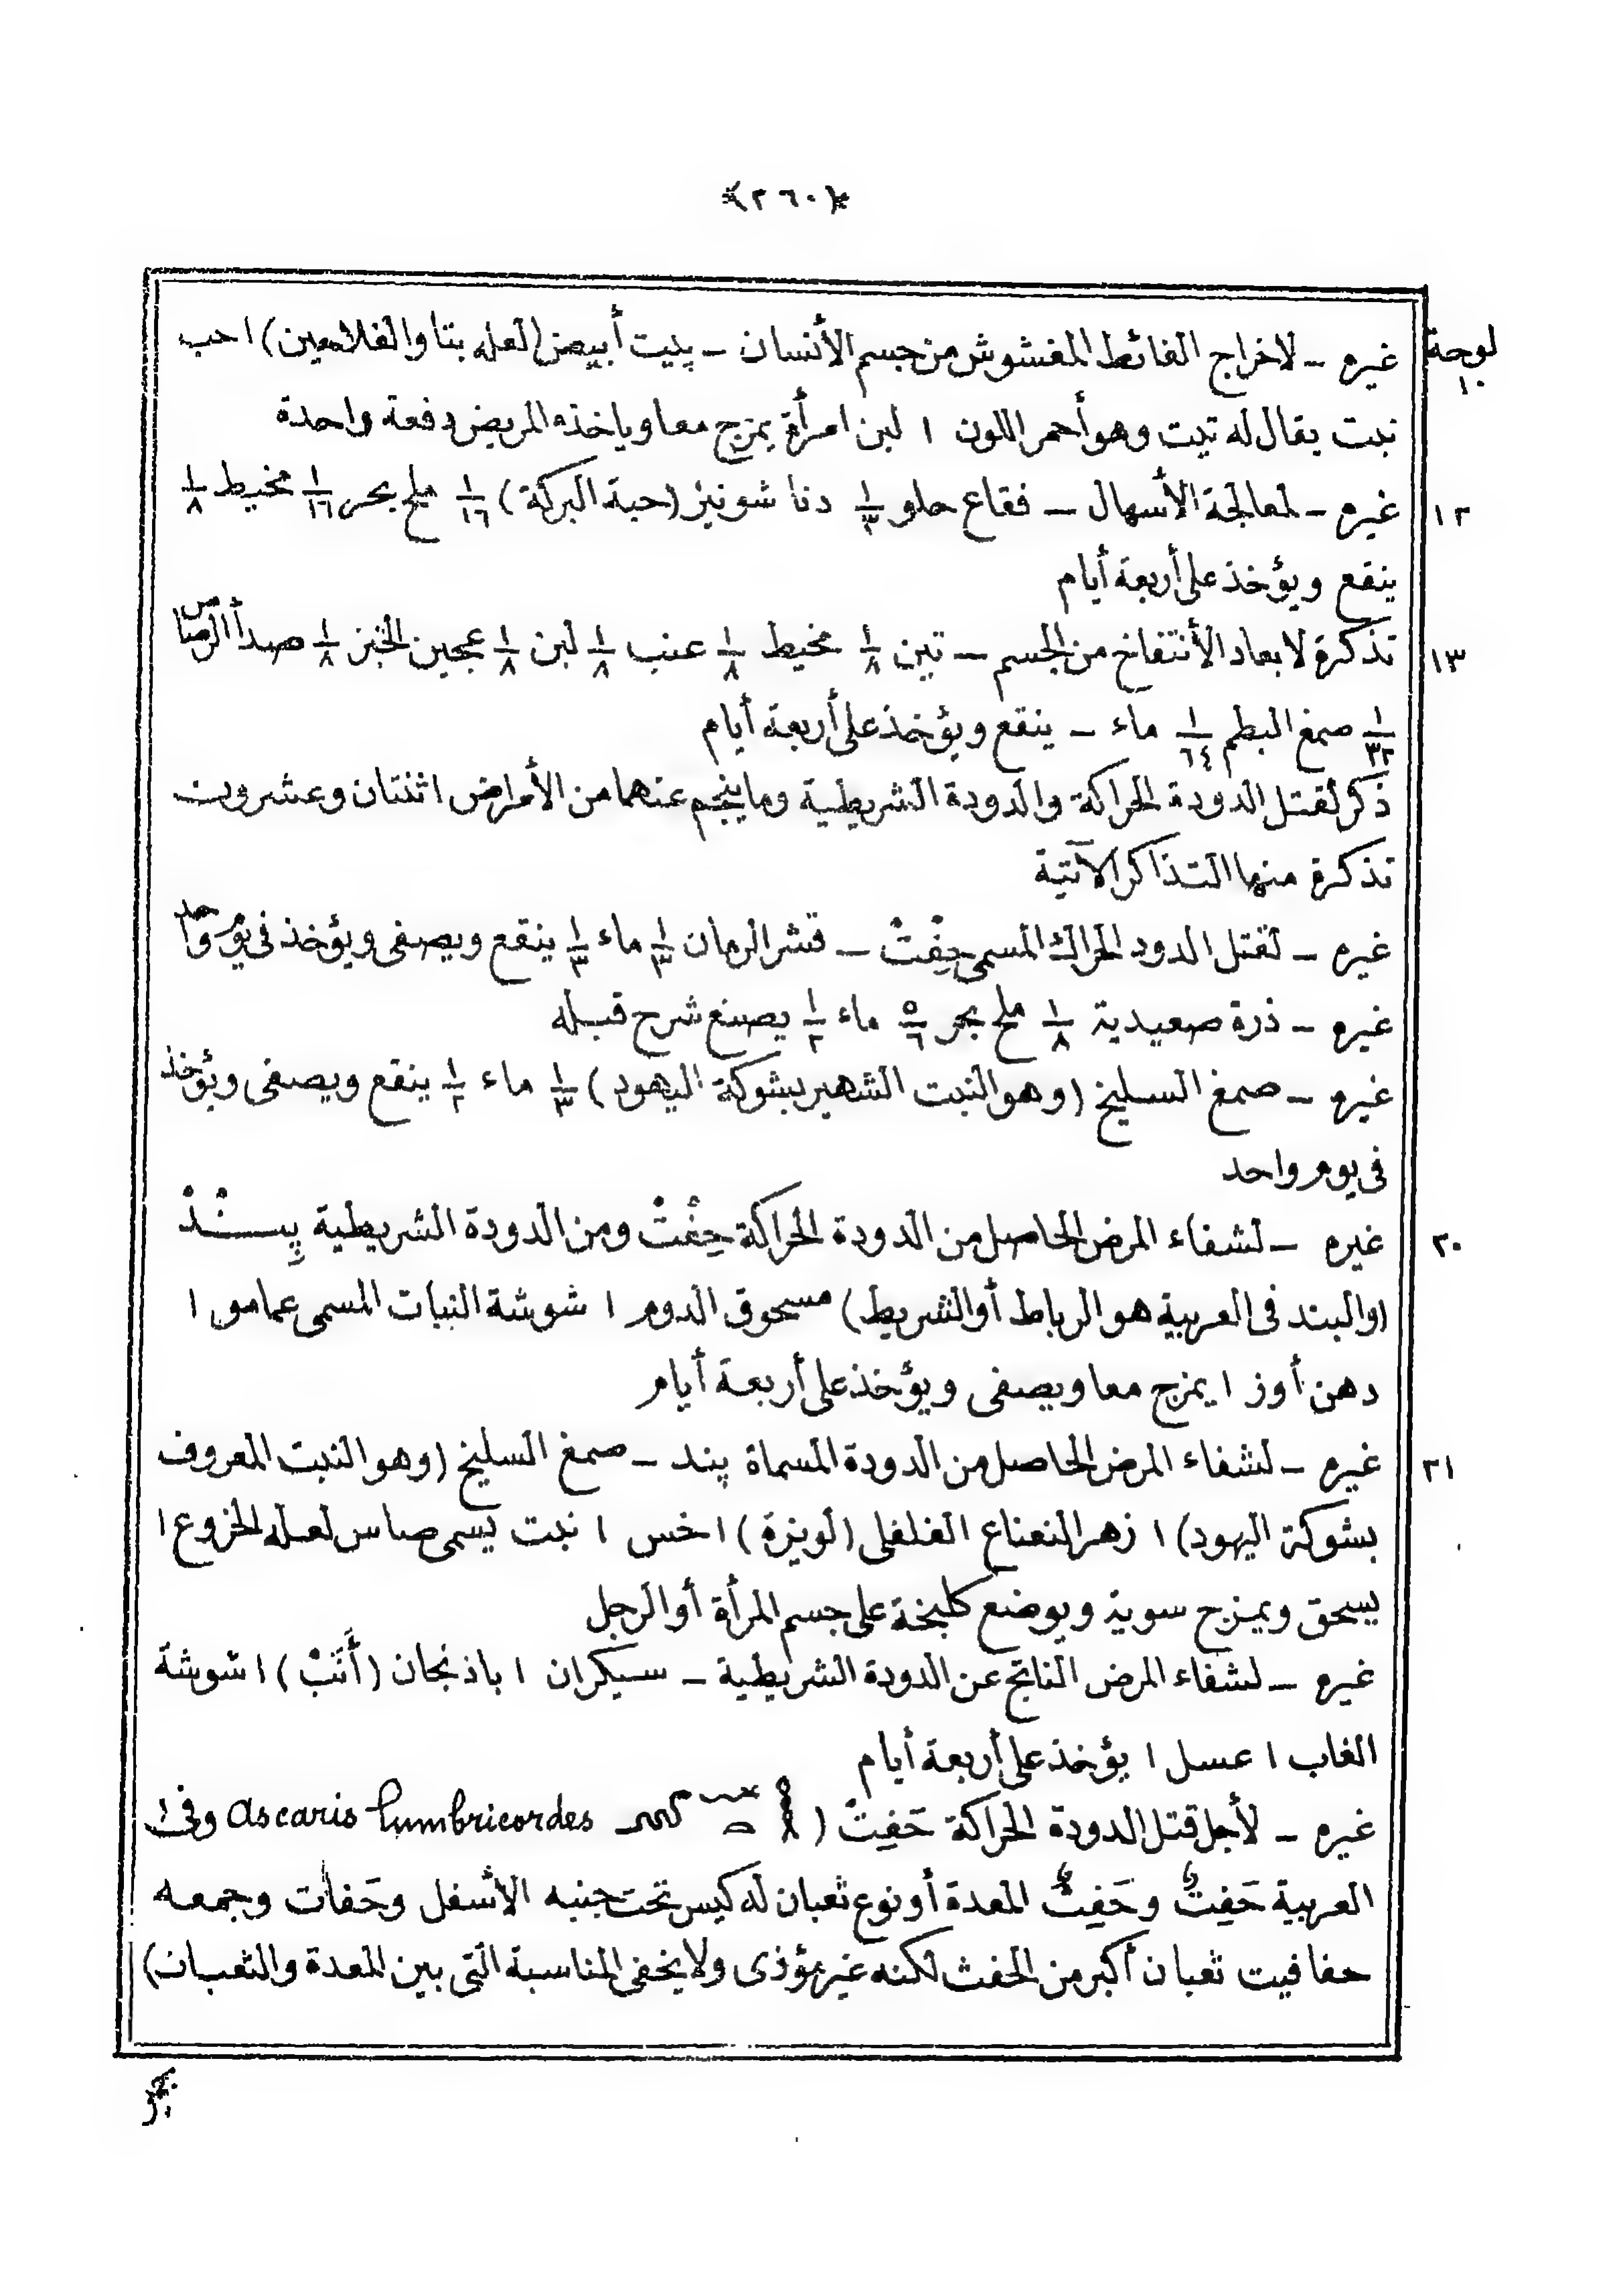 ﴿٢٦٠﴾
لوحة ١٠
غيره – لاخراج الغائط المغشوش من جسم الأنسان – پيت أبيض (لعله بتاو الفلاحين) ١ حب
نبت يقال له تيت وهو أحمر اللون ١ لبن امرأة يمزج معا وياخذه المريض دفعة واحدة
١٢ غيره – لمعالجة الأسهال – فقاع حلو ١/٣ دقا شونيز (حبة البركة) ١/١٦ ملح بحر ١/١٦ مخيط ١/٨
ينقع ويؤخذ على أربعة أيام
١٣ تذكرة لابعاد الأنتفاخ من الجسم – تين ١/٨ مخيط ١/٨ عنب ١/٨ لبن ١/٨ عجين الخبز ١/٨ صدأ الرصاص
١/٣٢ صمغ البطم ١/٦٤ ماء – ينقع ويؤخذ على أربعة أيام
ذكر لقتل الدودة الحراكة والدودة الشريطية وما ينجم عنهما من الأمراض اثنتان وعشرون
تذكرة منها التذاكر الآتية
غيره – لقتل الدود الحراك المسمى حِفِتْ – قشر الرمان ١/٣ ماء ١/٣ ينقع ويصفى ويؤخذ فى يوم واحد
غيره – ذرة صعيدية ١/٨ ملح بحر ٥/٦ ماء ١/٢ يصنع شرح قبله
غيره – صمغ السليخ (وهو النبت الشهير بشوكة اليهود) ١/٣ ماء ١/٢ ينقع ويصفى ويؤخذ
فى يوم واحد
٢٠ غيره – لشفاء المرض الحاصل من الدودة الحراكة حِفْتْ ومن الدودة الشريطية پِنْدْ
(والبند فى العربية هو الرباط أو الشريط) مسحوق الدوم ١ شوشة النبات المسمى عمامو ١
دهن أوز ١ يمزج معا ويصفى ويؤخذ على أربعة أيام
٢١ غيره – لشفاء المرض الحاصل من الدودة المسماة پند – صمغ السليخ (وهو النبت المعروف
بشوكة اليهود) ١ زهر النعناع الفلفلى (لويزة) ١ خس ١ نبت يسمى صاس لعله الخروع ١
يسحق ويمزج سوية ويوضع كلبخة على جسم المرأة أو الرجل
غيره – لشفاء المرض الناتج عن الدودة الشريطية – سيكران ١ باذنجان (أَنَبْ) ١ شوشة
الغاب ١ عسل ١ يؤخذ على أربعة أيام
غيره – لأجل قتل الدودة الحراكة حَفِتْ ( Ascaris lumbricordes وفى
العربية حَفِتٌ وحَفِثٌ المعدة أو نوع ثعبان له كيس تحت جنبه الأسفل وحَفات وجمعه
حفافيت ثعبان أكبر من الحفث لكنه غير مؤذى ولا يخفى المناسبة التى بين المعدة والثعبان)